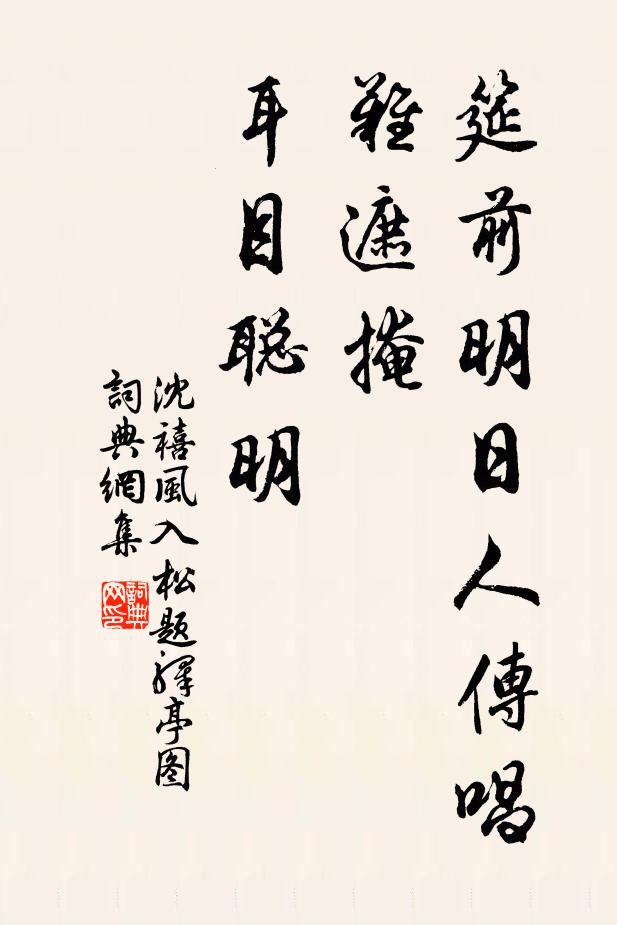 筵前明日人傳唱
難遮掩
耳目聡明
沈禧風入松题驛亭图
詞典網集
詞典网印